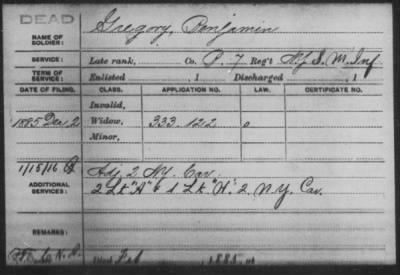 DEAD
NAME OF SOLDIER: Gregory, Benjamin
SERVICE: Late rank, Co. P. 7 Reg't N.Y. S. M. Inf
TERM OF SERVICE: Enlisted , 1 Discharged , 1
DATE OF FILING. CLASS. APPLICATION NO. LAW. CERTIFICATE NO.
Invalid,
1885 Dec, 2 Widow, 333.122
Minor,
1/15/16 Adj. 2 N.Y. Cav.
ADDITIONAL SERVICES: 2 Lt "A" & 1 Lt "H" 2. N.Y. Cav.
REMARKS:
Died Feb 1885